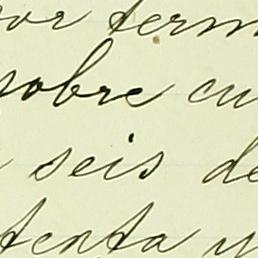 por term
sobre cu
seis de
tenta y